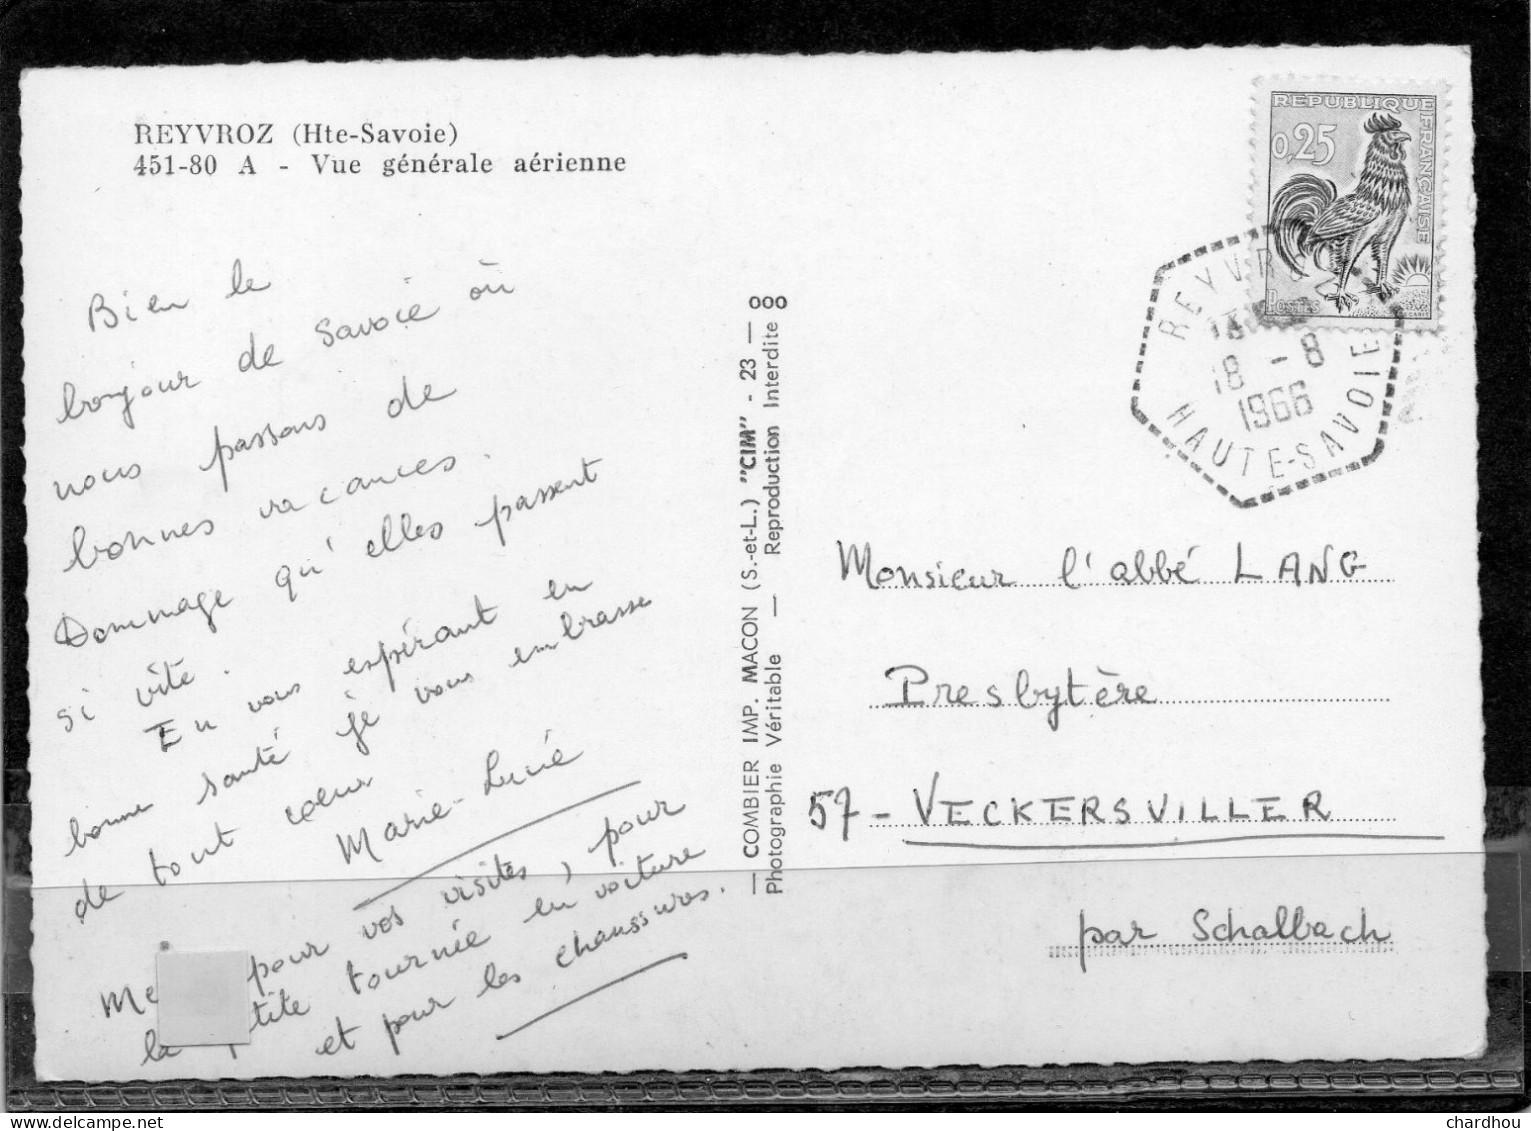 REYVROZ (Hte-Savoie)
451-80 A - Vue générale aérienne
Bien le
bonjour de Savoie où
nous passons de
bonnes vacances.
Dommage qu'elles passent
si vite.
En vous espérant en
bonne santé je vous embrasse
de tout cœur
Marie-Lucie
pour vos visites, pour
la petite tournée en voiture
et pour les chaussures.
— COMBIER IMP. MACON (S.-et-L.) "CIM" - 23 — ooo
Photographie Véritable — Reproduction Interdite 8
REPUBLIQUE FRANÇAISE
0,25
Postes
REYVRO
18 - 8
1966
HAUTE-SAVOIE
Monsieur l'abbé LANG
Presbytère
57 - VECKERSVILLER
par Schalbach
chardhou